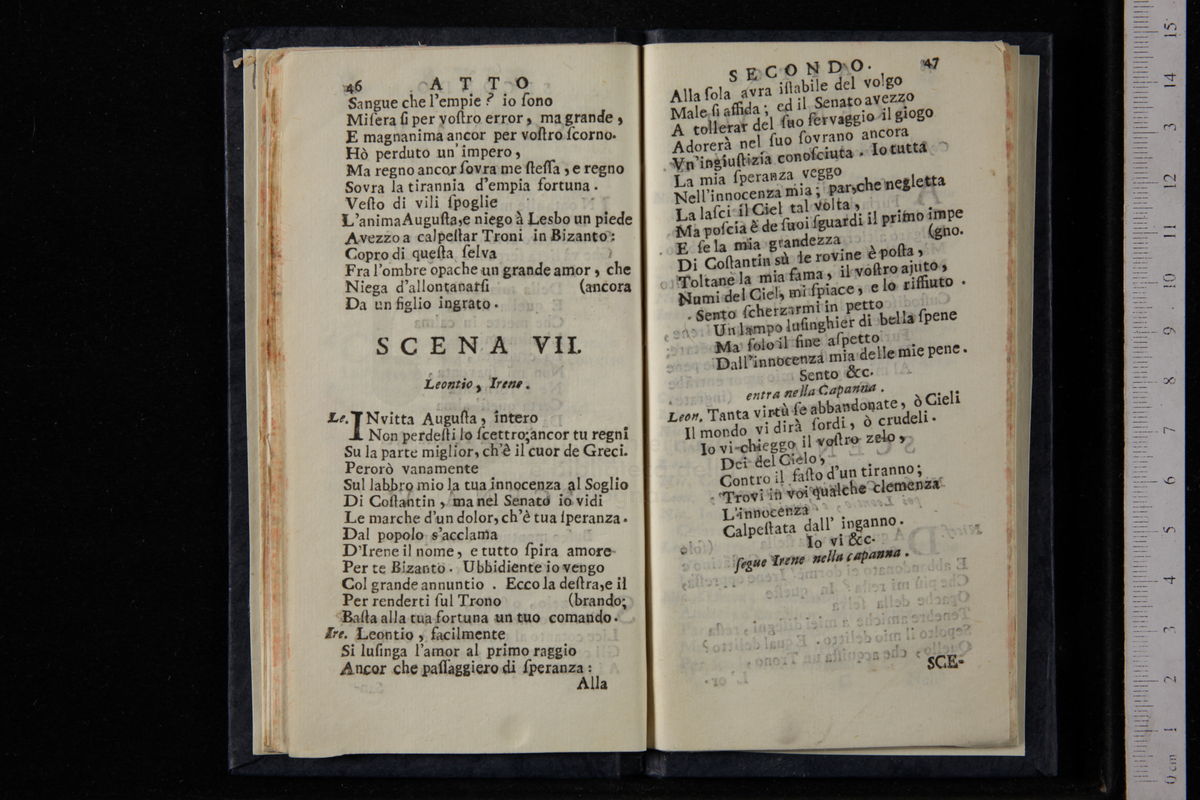 46 ATTO
Sangue che l'empie? io ſono
Miſera ſi per voſtro error, ma grande,
E magnanima ancor per voſtro ſcorno.
Hò perduto un' impero,
Ma regno ancor ſovra me ſteſſa, e regno
Sovra la tirannia d'empia fortuna.
Veſto di vili ſpoglie
L'anima Auguſta, e niego à Lesbo un piede
Avezzo a calpeſtar Troni in Bizanto:
Copro di queſta ſelva
Fra l'ombre opache un grande amor, che
Niega d'allontanarſi (ancora
Da un figlio ingrato.
SCENA VII.
Leontio, Irene.
Le. INvitta Auguſta, intero
Non perdeſti lo ſcettro; ancor tu regni
Su la parte miglior, ch'è il cuor de Greci.
Perorò vanamente
Sul labbro mio la tua innocenza al Soglio
Di Coſtantin, ma nel Senato io vidi
Le marche d'un dolor, ch'è tua ſperanza.
Dal popolo s'acclama
D'Irene il nome, e tutto ſpira amore
Per te Bizanto. Ubbidiente io vengo
Col grande annuntio. Ecco la deſtra, e il
Per renderti ſul Trono (brando;
Baſta alla tua fortuna un tuo comando.
Ire. Leontio, facilmente
Si luſinga l'amor al primo raggio
Ancor che paſſaggiero di ſperanza:
Alla
SECONDO. 47
Alla ſola avra iſtabile del volgo
Male ſi affida; ed il Senato avezzo
A tollerar del ſuo ſervaggio il giogo
Adorerà nel ſuo ſovrano ancora
Vn'ingiuſtizia conoſciuta. Io tutta
La mia ſperanza veggo
Nell'innocenza mia; par, che negletta
La laſci il Ciel tal volta,
Ma poſcia è de ſuoi ſguardi il primo impe
E ſe la mia grandezza (gno.
Di Coſtantin sù le rovine è poſta,
Toltane la mia fama, il voſtro ajuto,
Numi del Ciel, mi ſpiace, e lo riffiuto.
Sento ſcherzarmi in petto
Un lampo luſinghier di bella ſpene
Ma ſolo il fine aſpetto
Dall'innocenza mia delle mie pene.
Sento &c.
entra nella Capanna.
Leon. Tanta virtù ſe abbandonate, ò Cieli
Il mondo vi dirà ſordi, ò crudeli.
Io vi chieggo il voſtro zelo,
Dei del Cielo,
Contro il faſto d'un tiranno;
Trovi in voi qualche clemenza
L'innocenza
Calpeſtata dall' inganno.
Io vi &c.
ſegue Irene nella capanna.
SCE-
15
14
13
12
11
10
9
8
7
6
5
4
3
2
1
0 cm